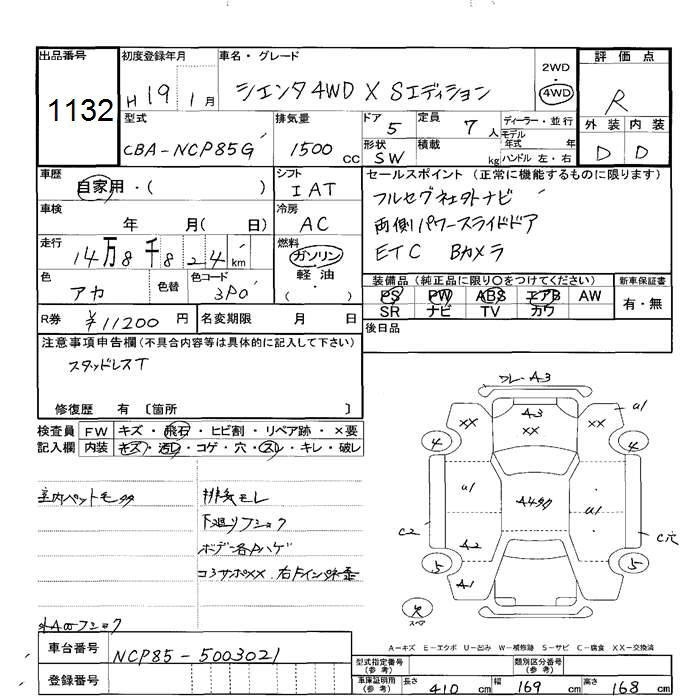 出品番号 初度登録年月 車名・グレード 評価点
1132 H 19 1月 シエンタ 4WD X Sエディション 2WD 4WD R
型式 排気量 ドア 5 定員 7人 ディーラー・並行 外装 内装
CBA-NCP85G 1500cc 形状 SW 積載 kg モデル年式 年 ハンドル 左・右 D D
車歴 自家用・( ) シフト IAT セールスポイント (正常に機能するものに限ります)
フルセグ ナビ
車検 年 月( 日) 冷房 AC 両側パワースライドドア
走行 14万8千824km 燃料 ガソリン ETC Bカメラ
軽油
( )
色 アカ 色替 色コード 3P0 装備品 (純正品に限り○をつけてください) 新車保証書
PS PW ABS エアB AW 有・無
SR ナビ TV カワ
R券 ¥11200 円 名変期限 月 日 後日品
注意事項申告欄 (不具合内容等は具体的に記入して下さい)
スタッドレスT
修復歴 有 〔箇所 〕
検査員 FW キズ・飛石・ヒビ割・リペア跡・×要
記入欄 内装 キズ・汚レ・コゲ・穴・スレ・キレ・破レ
室内ペット毛 排気モレ
下廻りフショク
ボデー各Aハゲ
コアサポXX 右Fインパネ歪
外 フショク
フレ・A3
A3
XX XX XX
U1
4 4
U1 A4 U1
C2 C穴
A2
5 5
A1
スペア
A=キズ E=エクボ U=凹み W=補修跡 S=サビ C=腐食 XX=交換済
車台番号 NCP85-5003021
型式指定番号(参考) 類別区分番号(参考)
登録番号 車庫証明用(参考) 長さ 410cm 幅 169cm 高さ 168cm